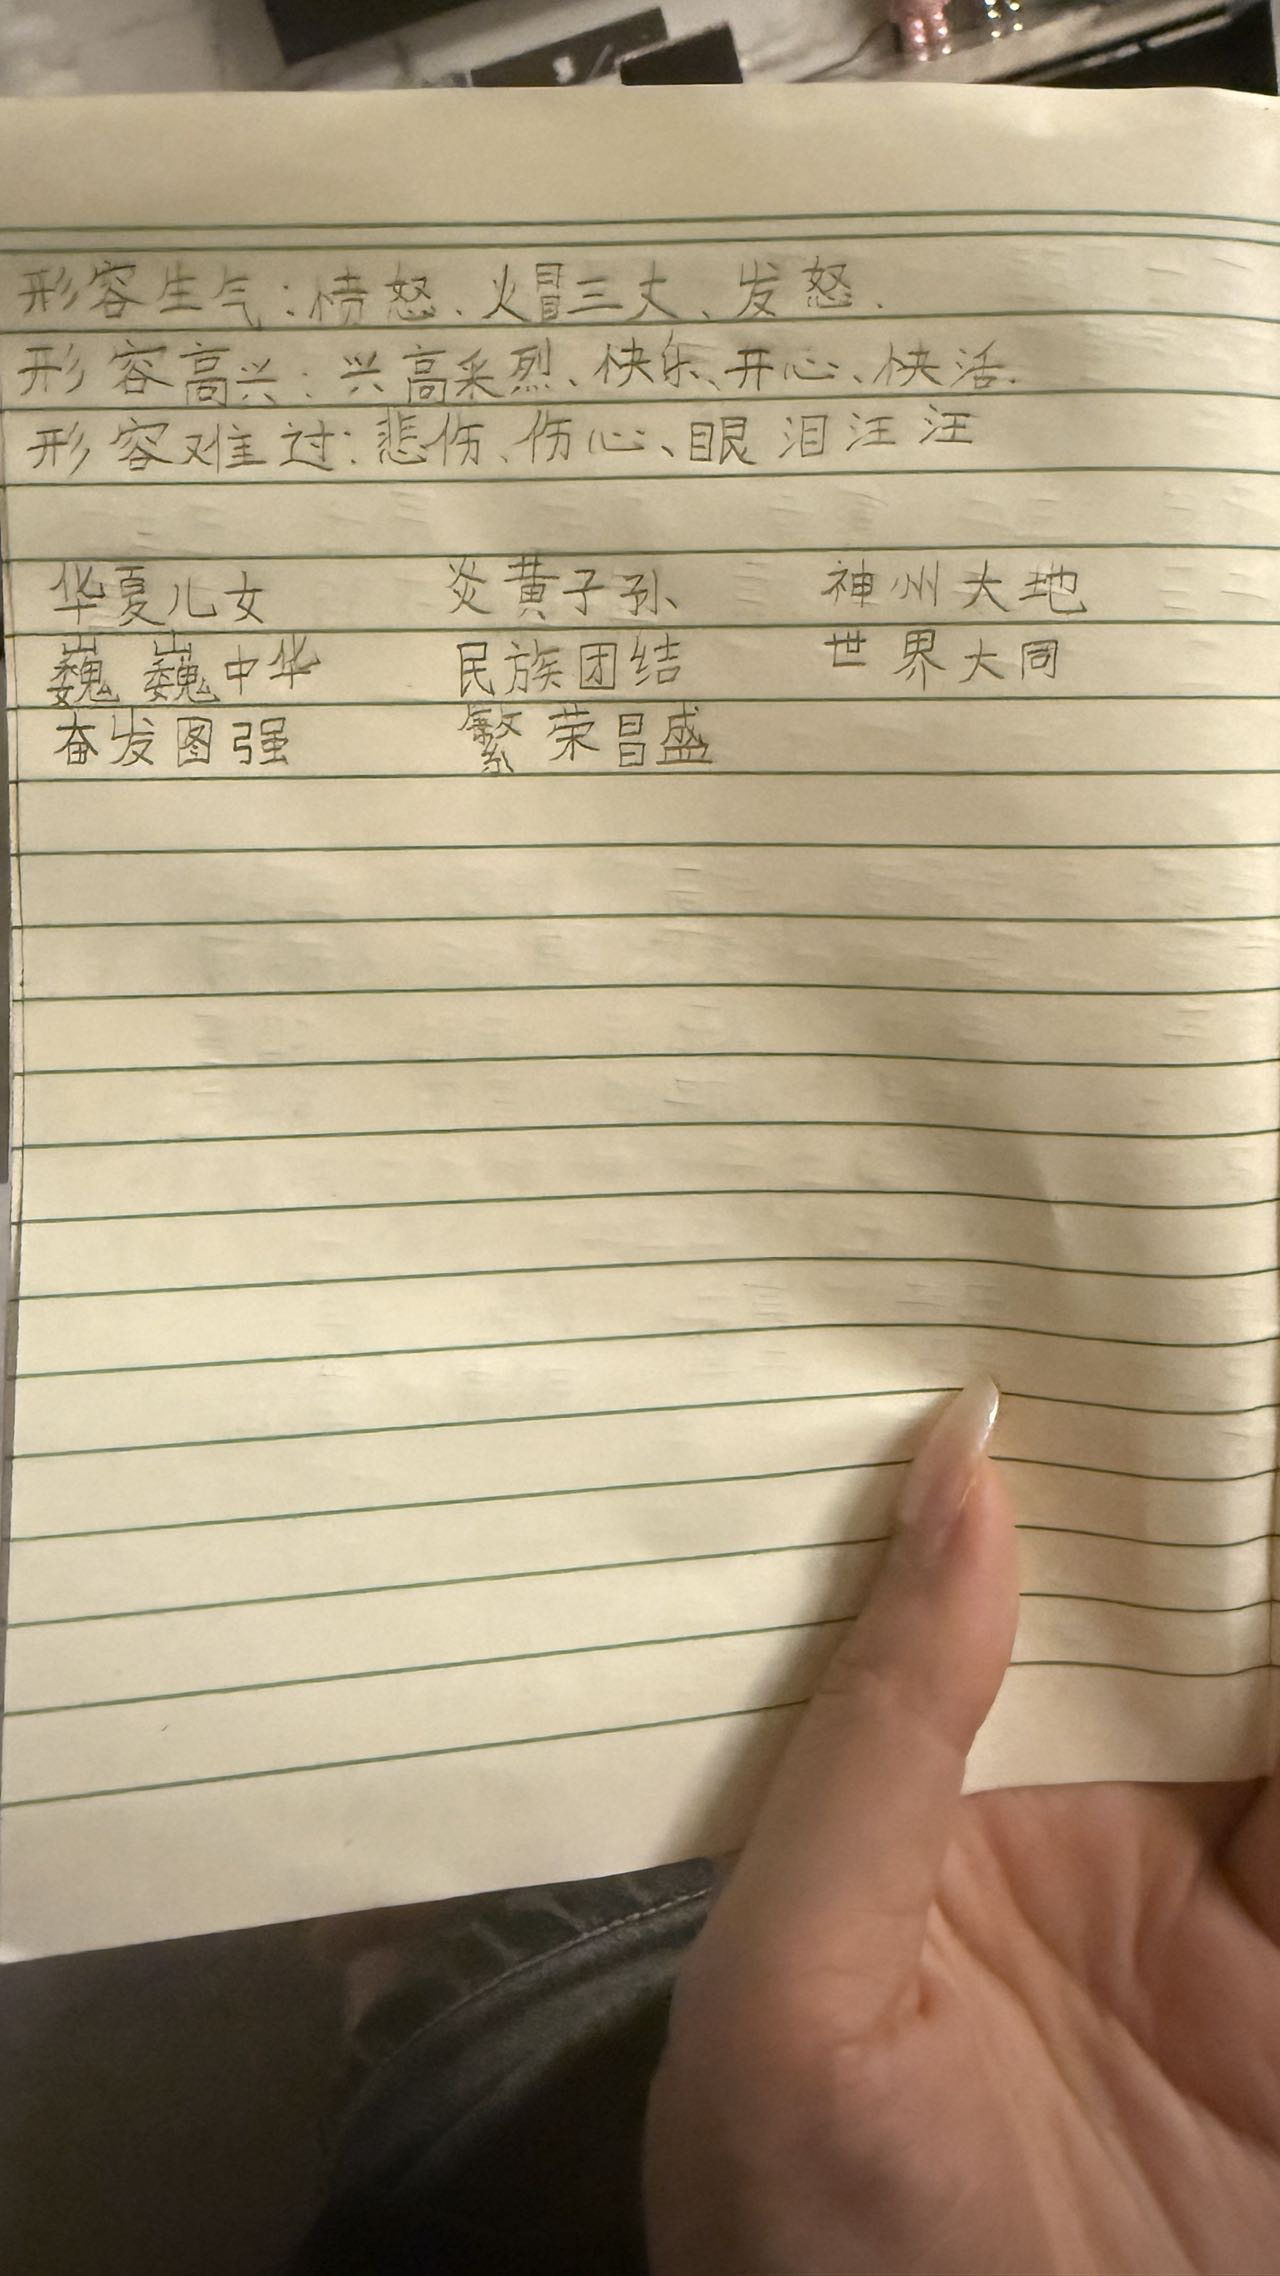 形容生气：愤怒、火冒三丈、发怒.
形容高兴：兴高采烈、快乐、开心、快活.
形容难过：悲伤、伤心、眼泪汪汪
华夏儿女 炎黄子孙 神州大地
巍巍中华 民族团结 世界大同
奋发图强 繁荣昌盛